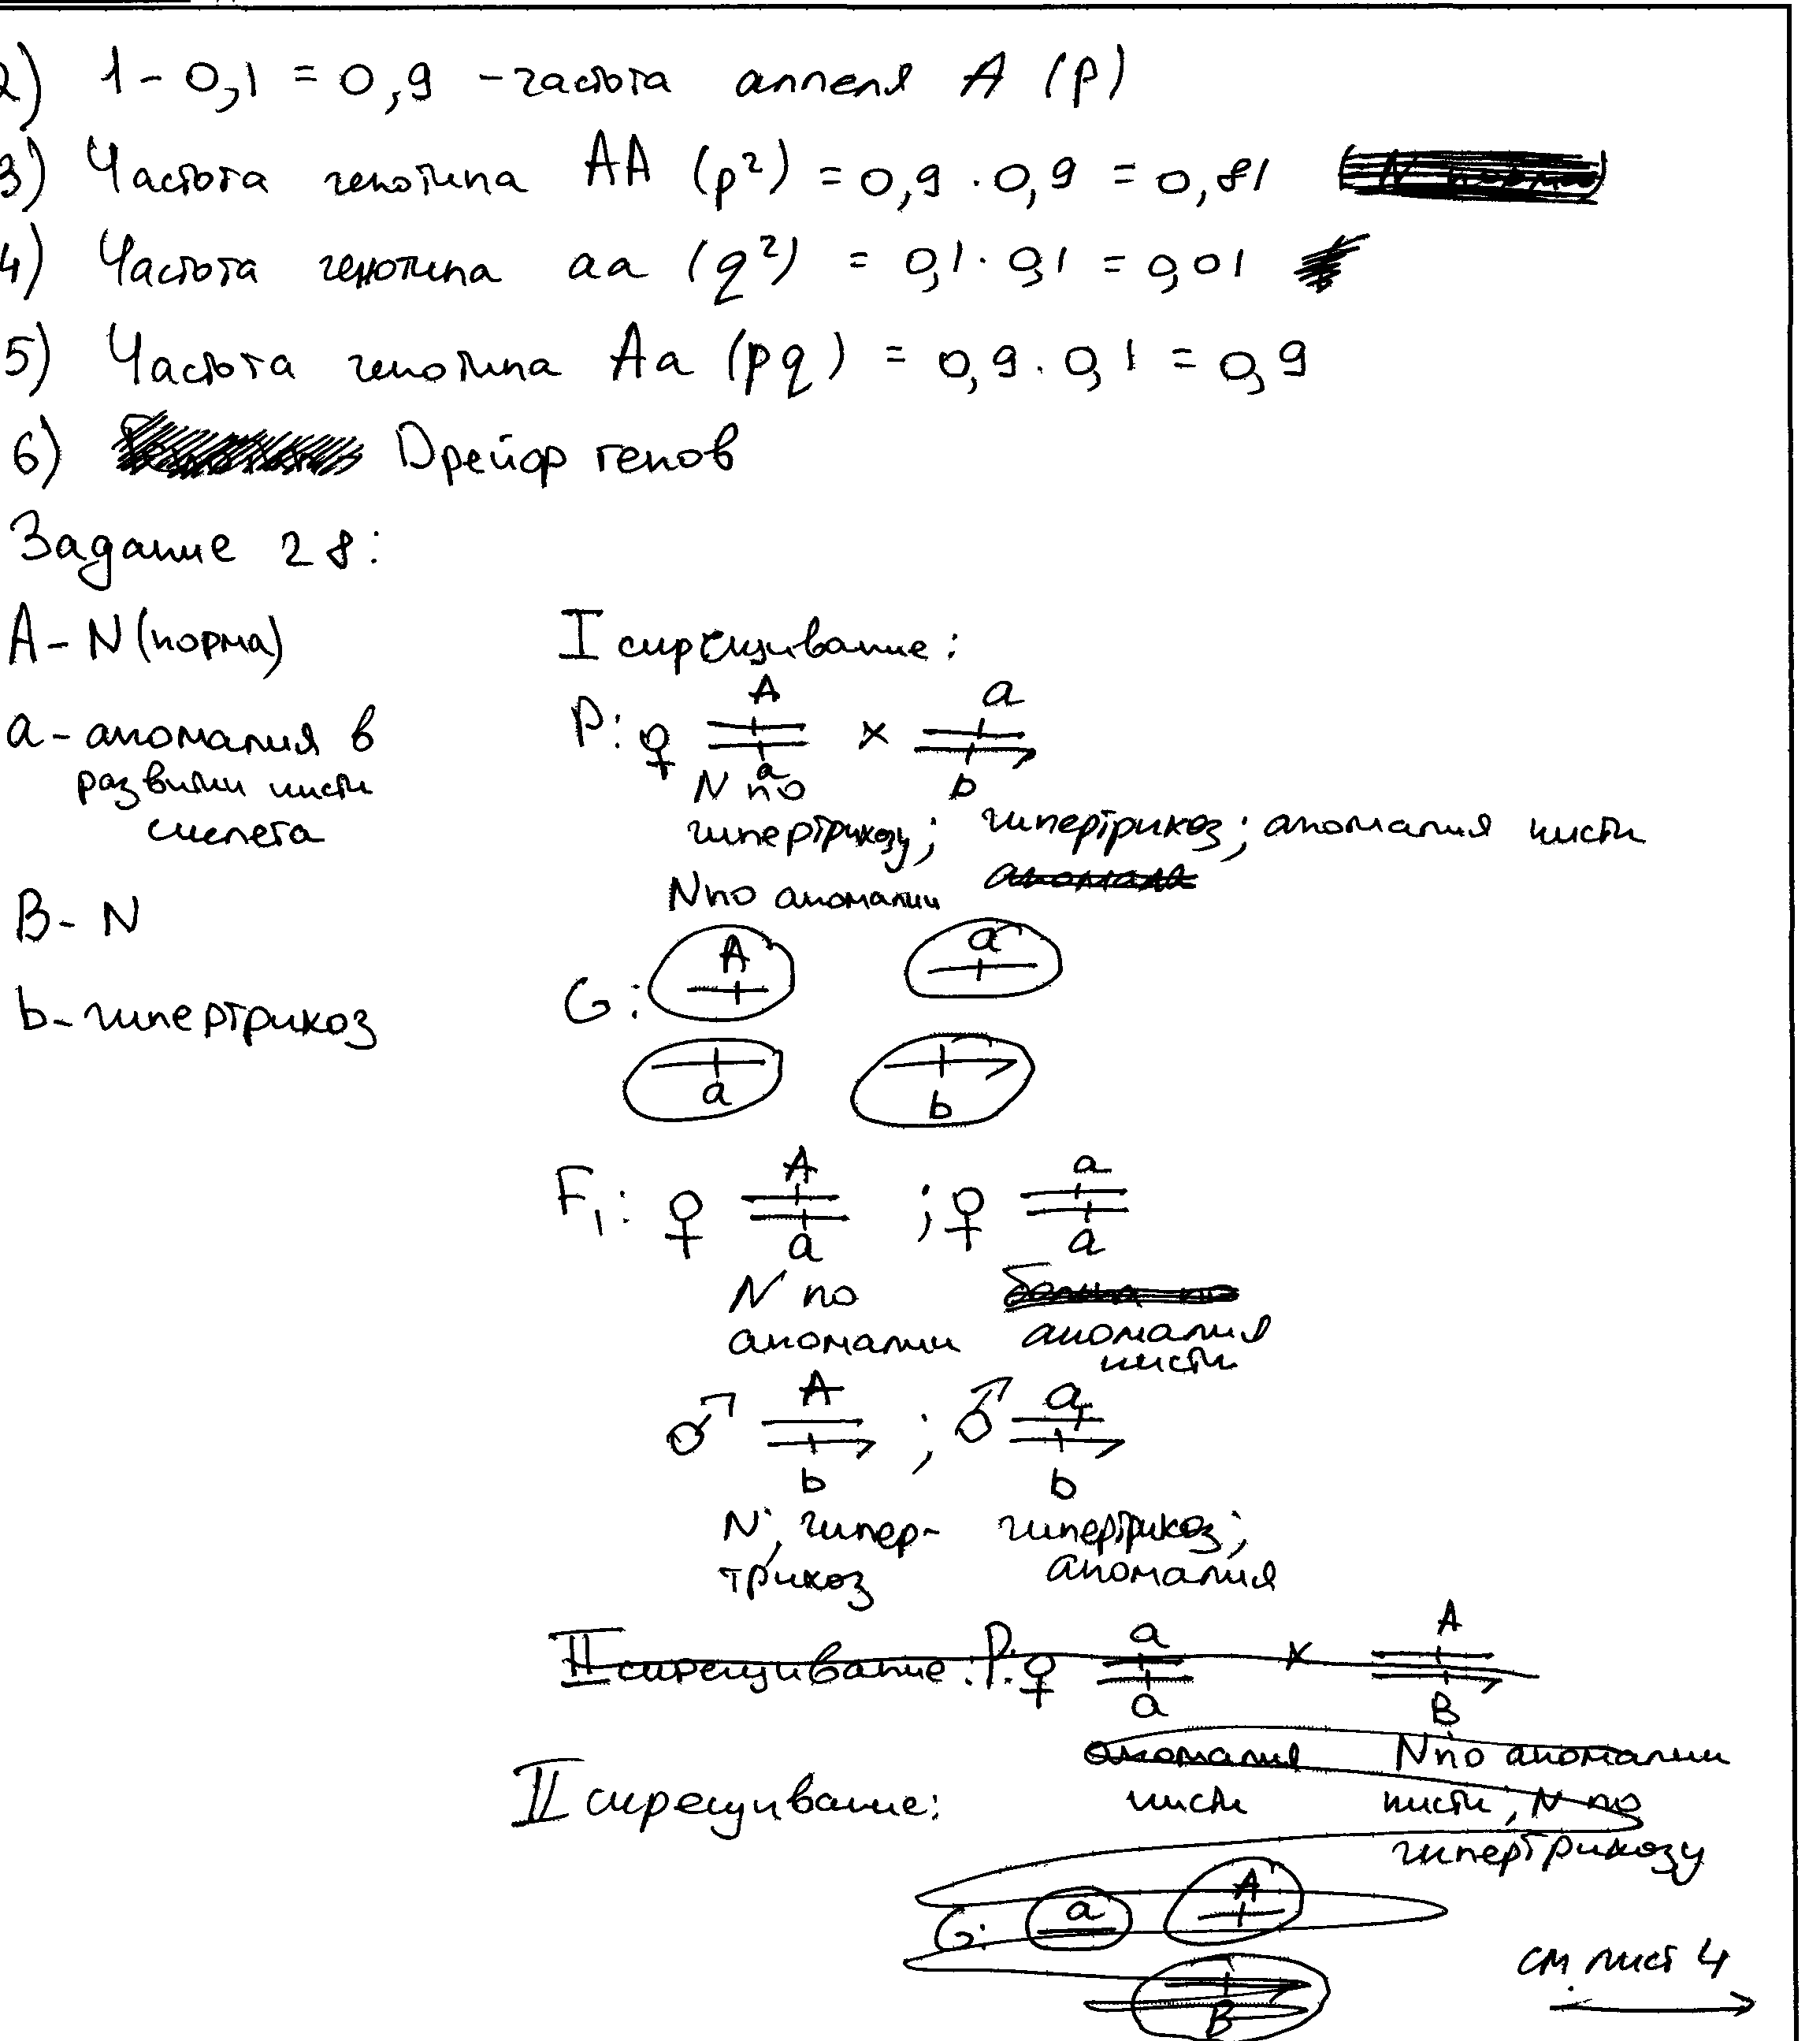 2) 1 - 0,1 = 0,9 - частота аллеля A (p)
3) Частота генотипа AA (p²) = 0,9 · 0,9 = 0,81
4) Частота генотипа aa (q²) = 0,1 · 0,1 = 0,01
5) Частота генотипа Aa (pq) = 0,9 · 0,1 = 0,9
6) Дрейф генов
Задание 28:
A - N (норма)
a - аномалия в
развитии кисти
скелета
B - N
b - гипертрихоз
I скрещивание:
P: ♀ A a × a b
N по
гипертрихозу; гипертрихоз; аномалия кисти
N по аномалии аномалия
G: A a
a b
F₁: ♀ A a ; ♀ a a
N по
аномалии аномалия
кисти
♂ A b ; ♂ a b
N; гипер- гипертрихоз;
трихоз аномалия
II скрещивание: P: ♀ a a × A B
аномалия N по аномалии
II скрещивание: кисти кисти, N по
гипертрихозу
G: a A
B
см лист 4